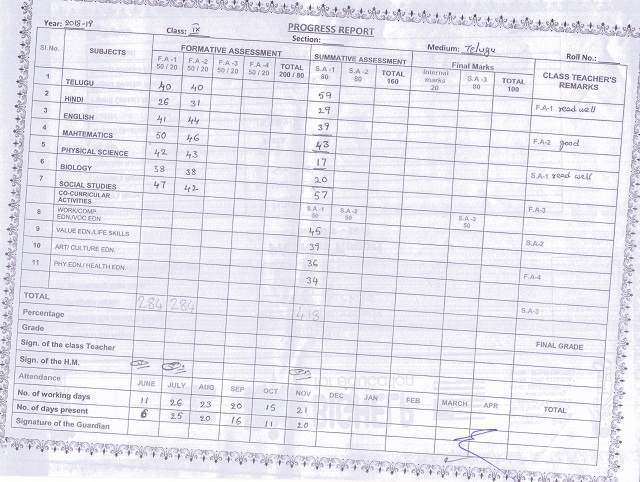 PROGRESS REPORT
Year: 2018-19 Class: IX Section: Medium: Telugu Roll No.:
Sl.No. SUBJECTS FORMATIVE ASSESSMENT SUMMATIVE ASSESSMENT Final Marks CLASS TEACHER'S REMARKS
F.A-1 50/20 F.A-2 50/20 F.A-3 50/20 F.A-4 50/20 TOTAL 200/80 S.A-1 80 S.A-2 80 TOTAL 160 Internal marks 20 S.A-3 80 TOTAL 100
1 TELUGU 40 40 59 F.A-1 read well
2 HINDI 26 31 29
3 ENGLISH 41 44 39 F.A-2 good
4 MAHTEMATICS 50 46 43
5 PHYSICAL SCIENCE 42 43 17 S.A-1 read well
6 BIOLOGY 38 38 20
7 SOCIAL STUDIES 47 42 57 F.A-3
CO-CURRICULAR ACTIVITIES S.A-1 50 S.A-2 50 S.A-3 50
8 WORK/COMP. EDN./VOC.EDN. 45 S.A-2
9 VALUE EDN./LIFE SKILLS 39
10 ART/ CULTURE EDN. 36 F.A-4
11 PHY.EDN./ HEALTH EDN. 34
TOTAL 284 284 418 S.A-3
Percentage
Grade FINAL GRADE
Sign. of the class Teacher
Sign. of the H.M.
Attendance JUNE JULY AUG SEP OCT NOV DEC JAN FEB MARCH APR TOTAL
No. of working days 11 26 23 20 15 21
No. of days present 6 25 20 16 11 20
Signature of the Guardian